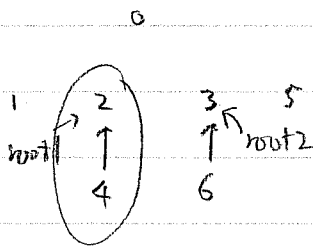 0
1 2 3 5
root1 root2
4 6